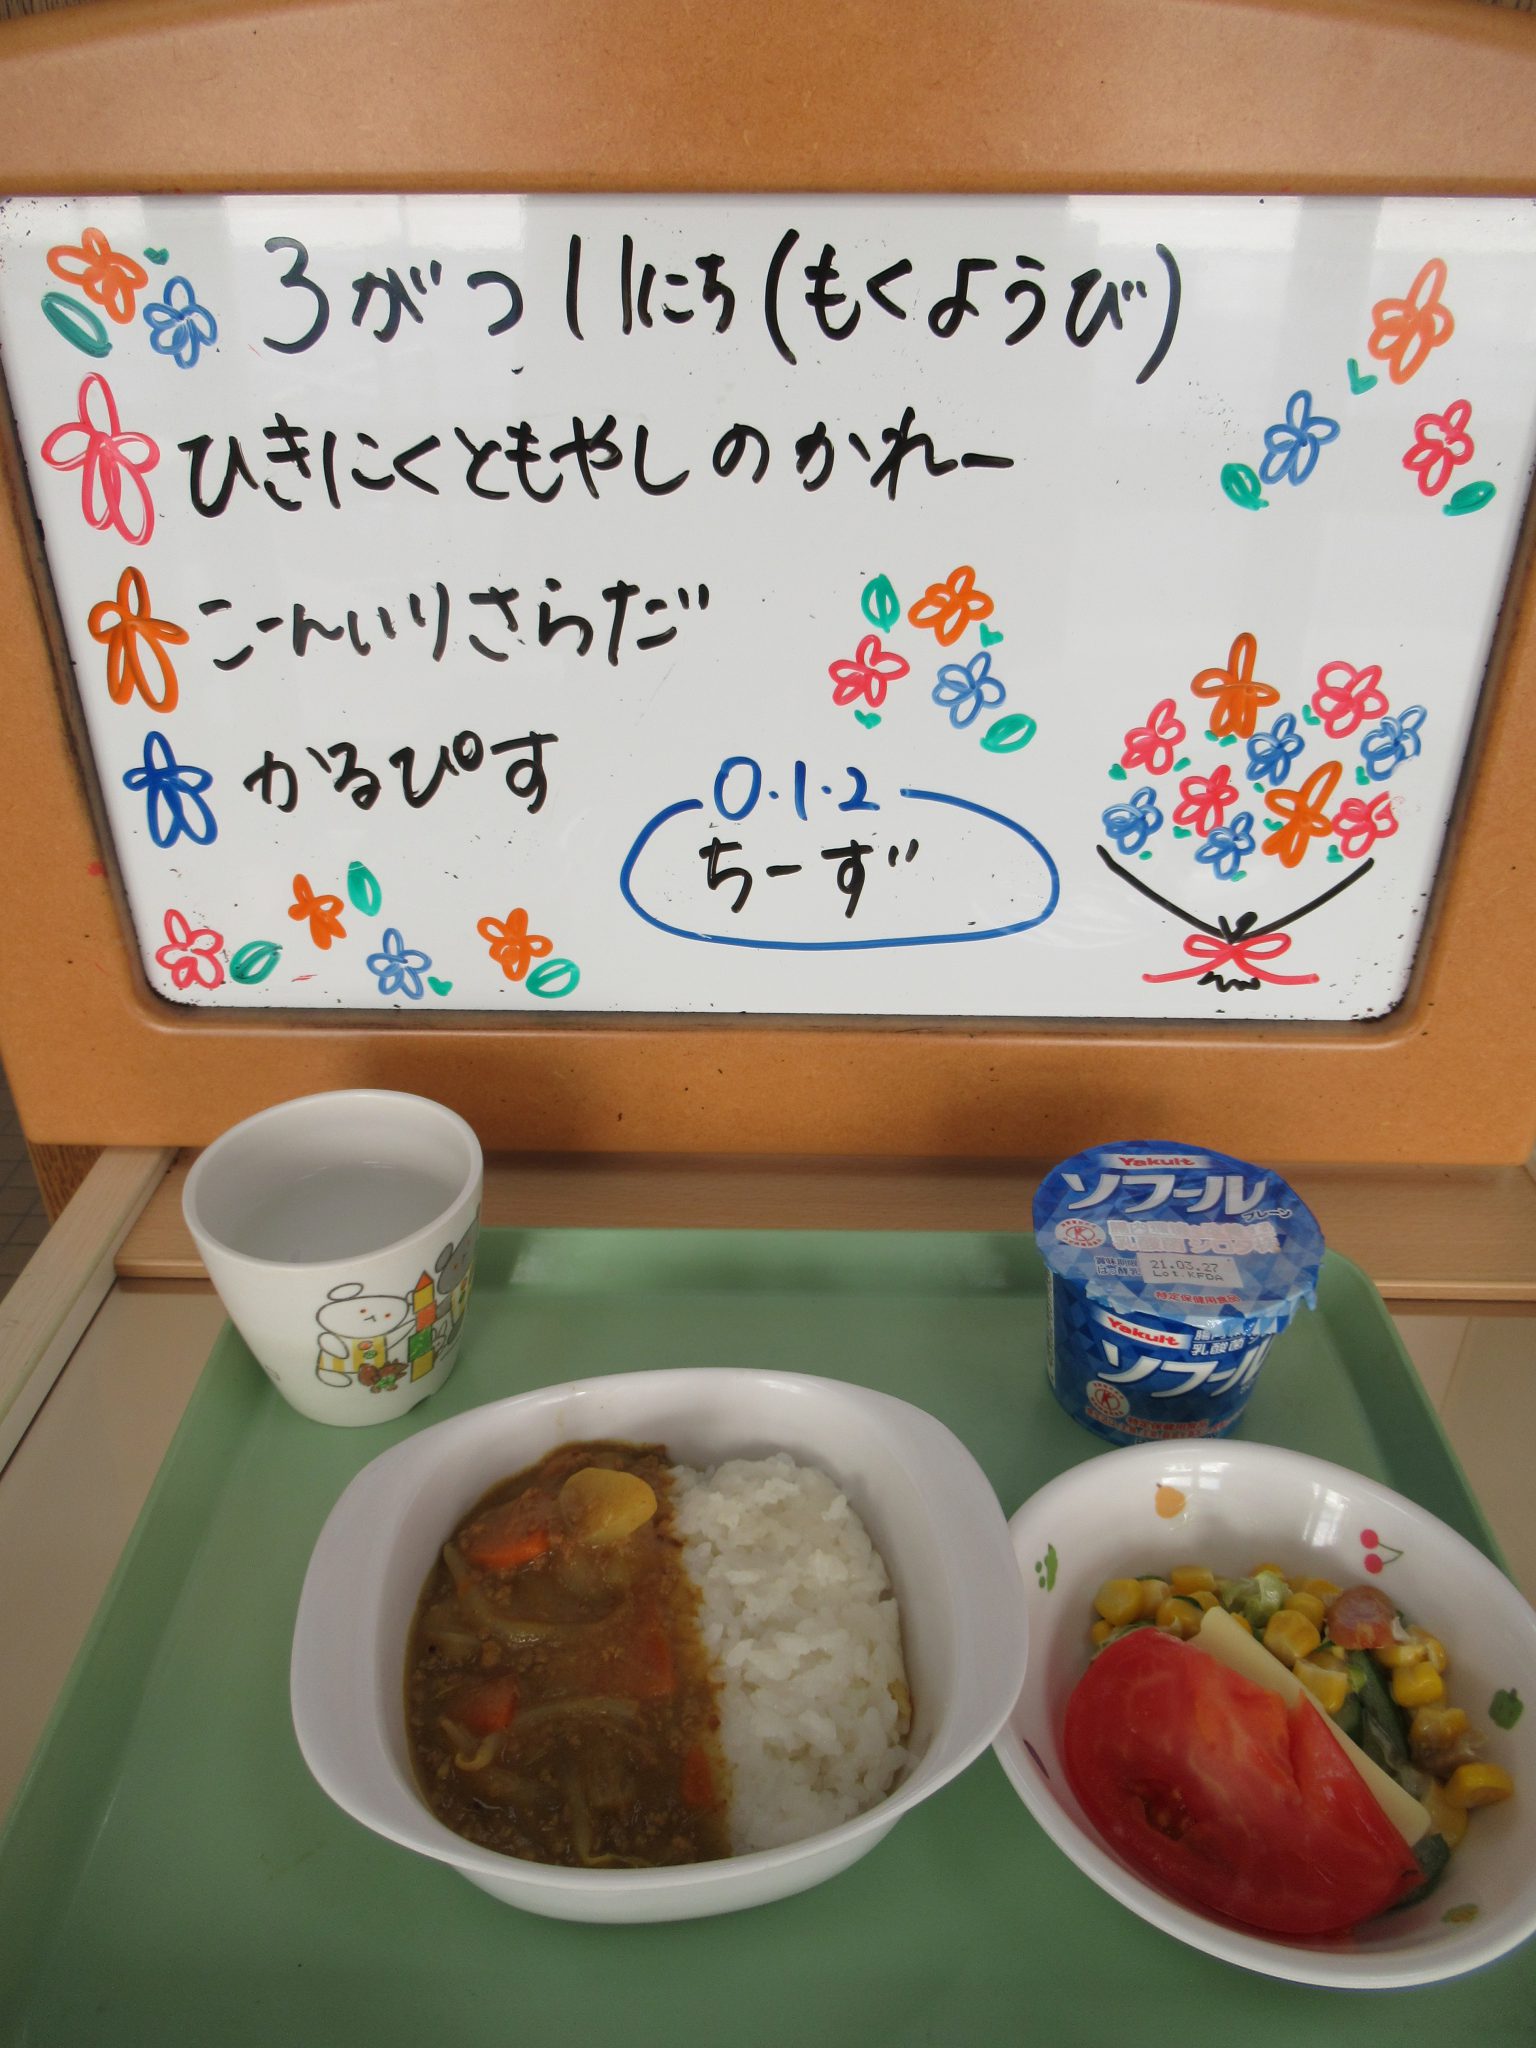 3がつ11にち(もくようび)
ひきにくともやしのかれー
こーんいりさらだ
かるぴす
0・1・2
ちーず
Yakult
ソフール
プレーン
乳酸菌 シロタ株
賞味期限
21.03.27
Lot.KFDA
特定保健用食品
Yakult
乳酸菌
ソフール
特定保健用食品